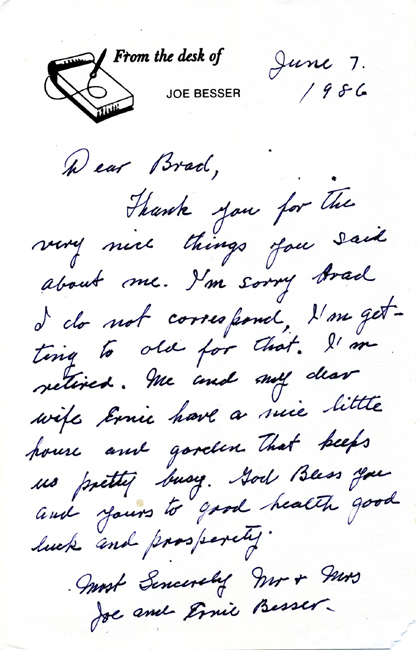 From the desk of
JOE BESSER
June 7.
1986
Dear Brad,
Thank you for the
very nice things you said
about me. I'm sorry Brad
I do not correspond, I'm get-
ting to old for that. I'm
retired. Me and my dear
wife Ernie have a nice little
house and garden that keeps
us pretty busy. God Bless you
and yours to good health good
luck and prosperity.
Most Sincerely Mr & Mrs
Joe and Ernie Besser.